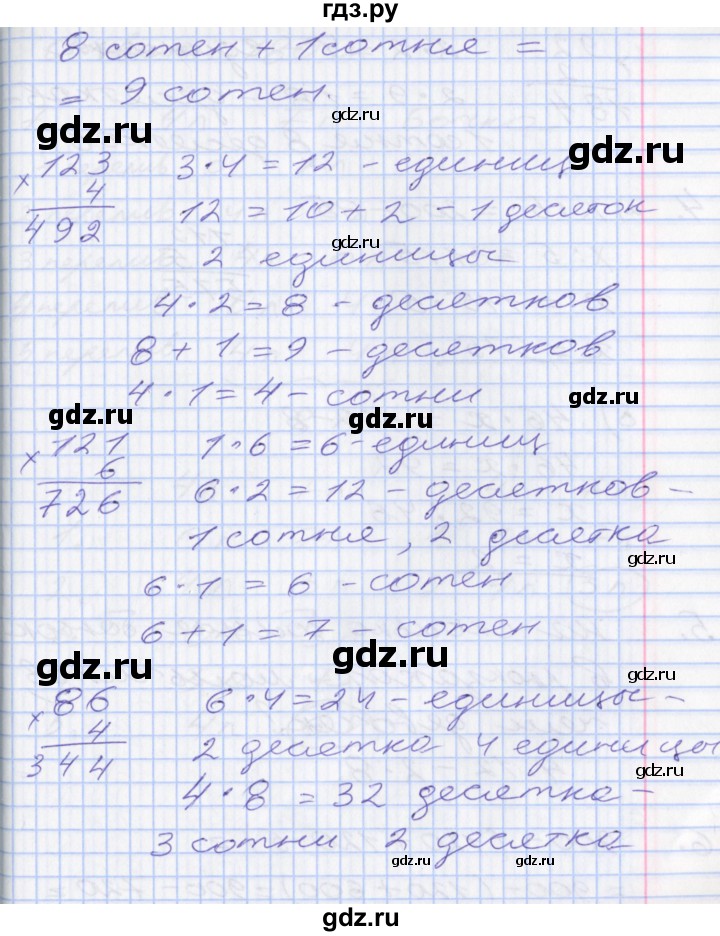 гдз.ру
8 сотен + 1 сотня =
= 9 сотен.
gdz.ru
gdz.ru
gdz.ru
× 123
4
492
3·4 = 12 - единиц
12 = 10 + 2 - 1 десяток
gdz.ru
2 единицы
4·2 = 8 - десятков
8 + 1 = 9 - десятков
4·1 = 4 - сотни
gdz.ru
gdz.ru
gdz.ru
× 121
6
726
1·6 = 6 - единиц
6·2 = 12 - десятков -
1 сотня, 2 десятка
gdz.ru
6·1 = 6 - сотен
6 + 1 = 7 - сотен
gdz.ru
gdz.ru
gdz.ru
× 86
4
344
6·4 = 24 - единицы -
2 десятка 4 единицы
gdz.ru
4·8 = 32 десятка -
3 сотни 2 десятка
gdz.ru
gdz.ru
gdz.ru